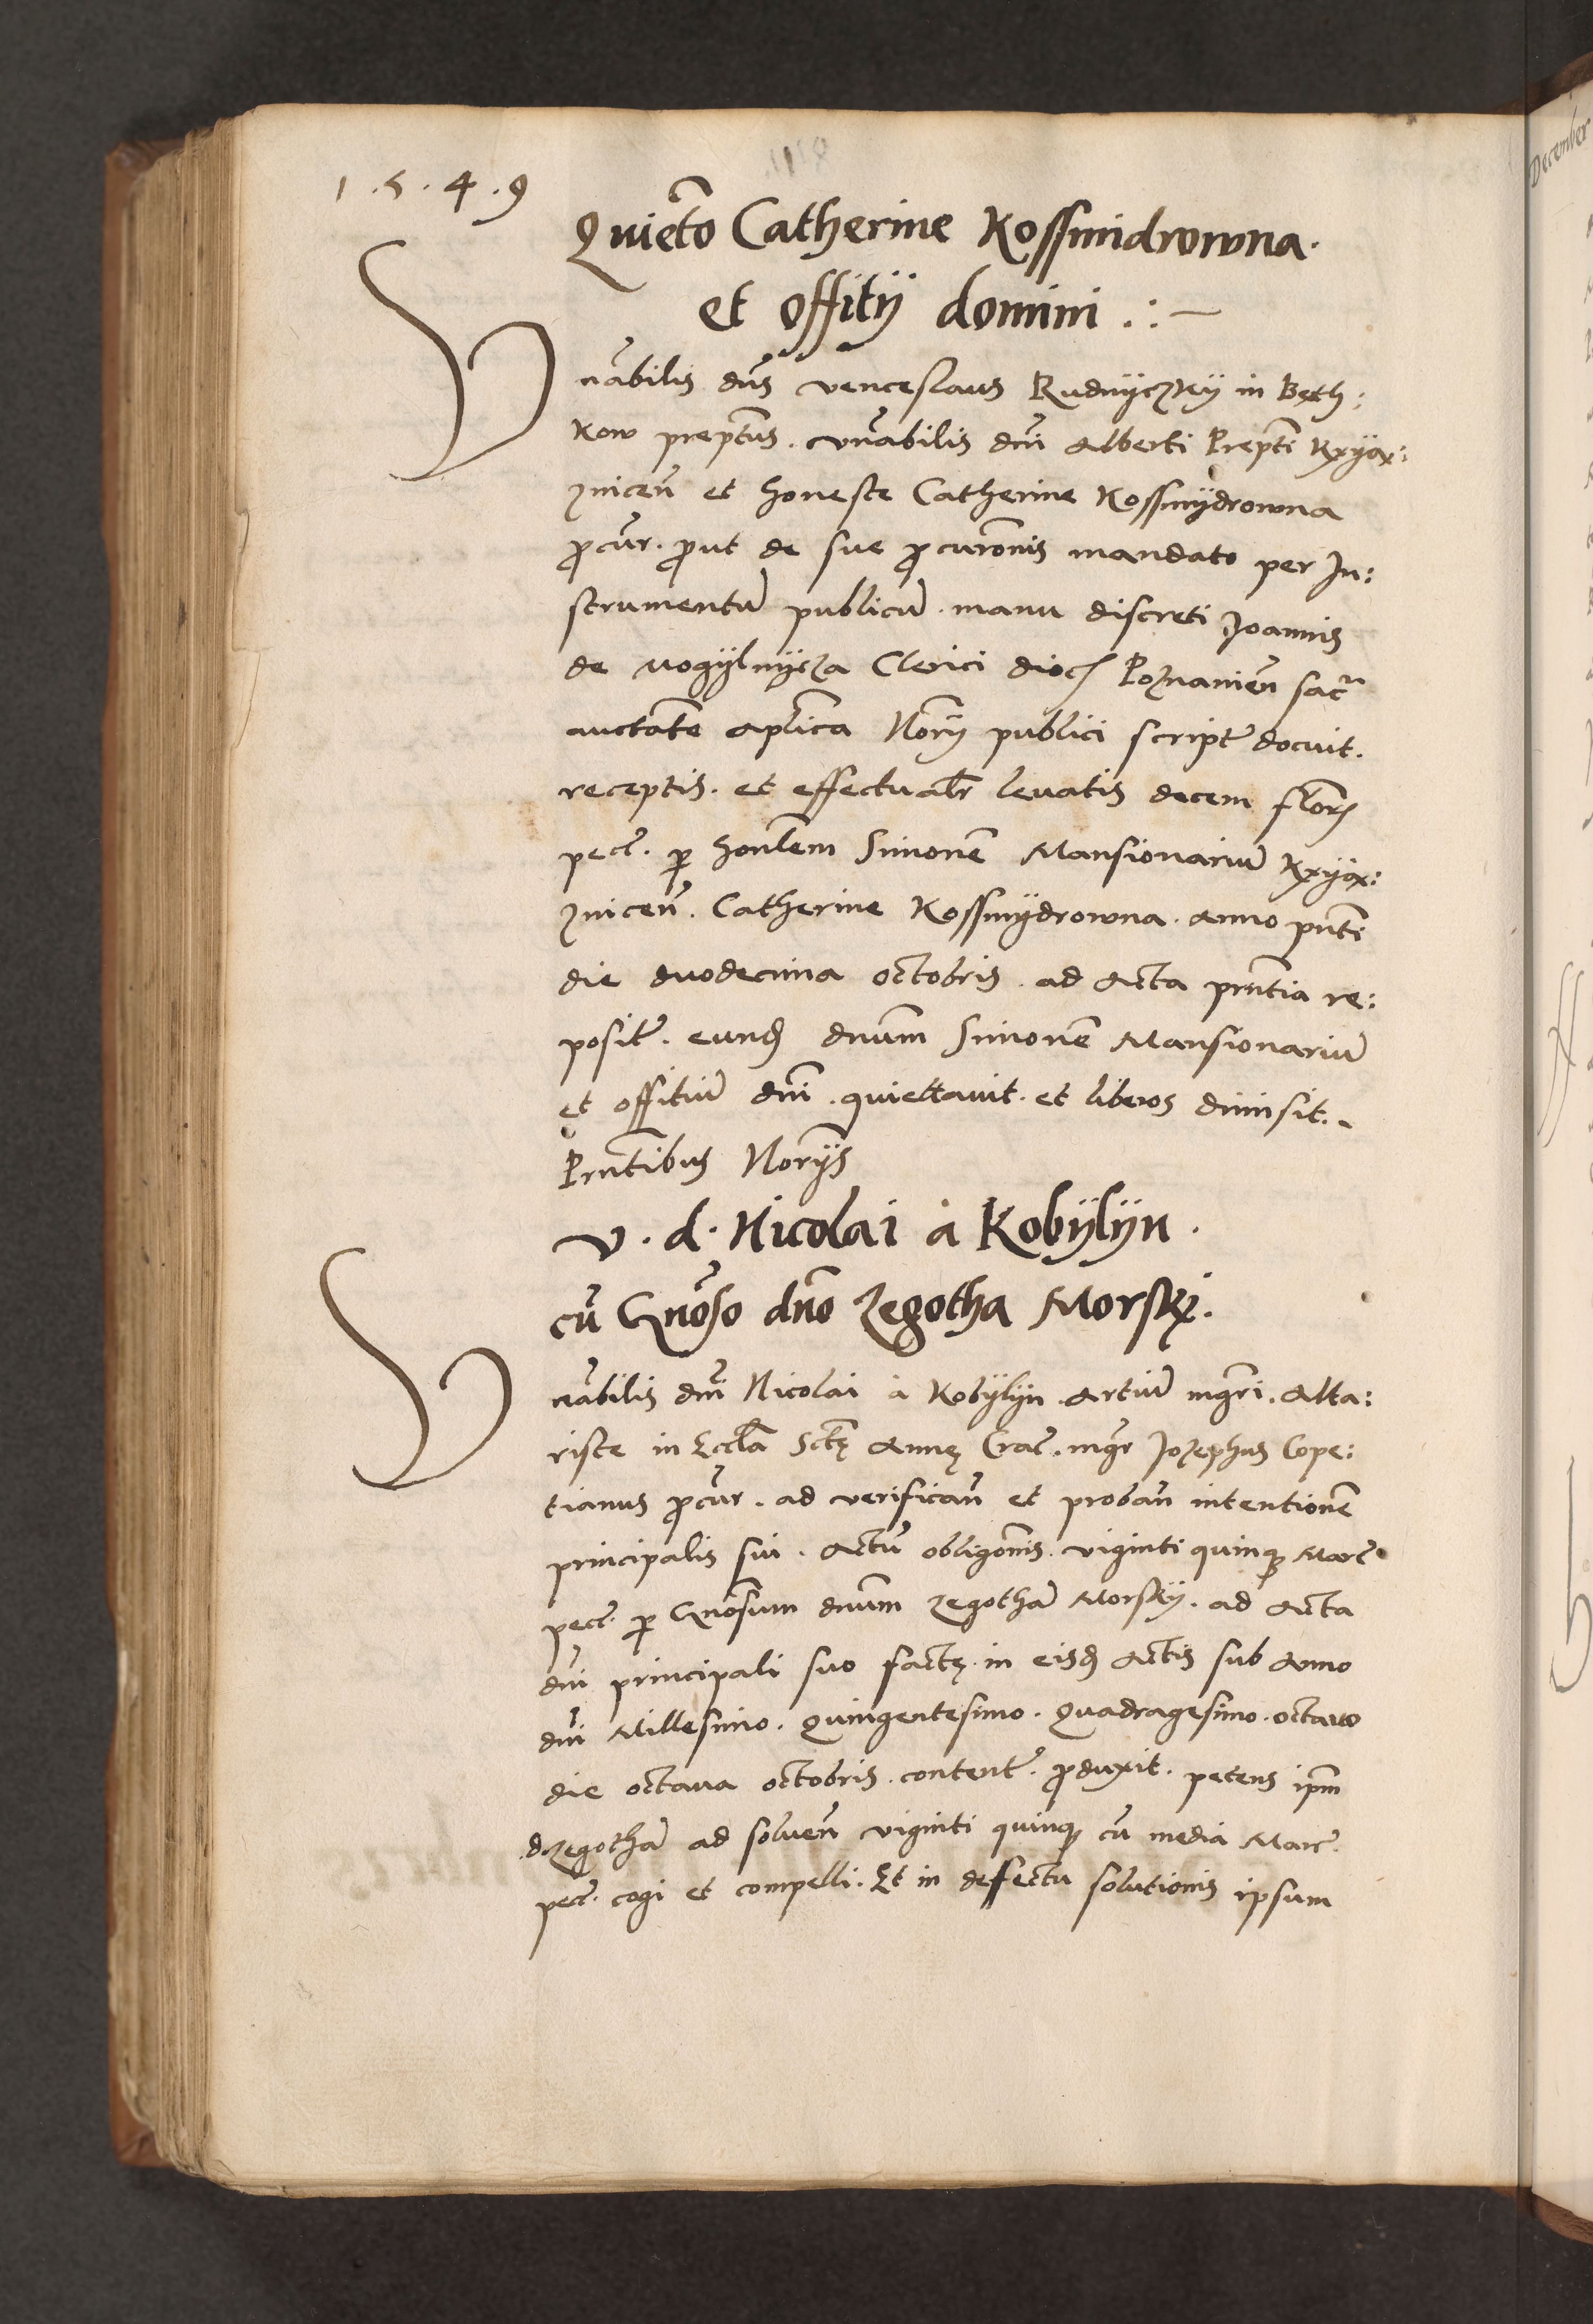 1.5.4.9
Quietō Catherine Kossmidrowna.
et offitij domini .:-
Vnābilis dn̄s venceslaus Rudnyczky in Bęth:
kow prep̄tus . vn̄abilis dn̄i Alberti Prep̄ti Kxyax:
znicen̄ et honeste Catherine Kossmydrowna
p̄cur̄ . p̄ut de sue p̄curōnis mandato per In:
strumentū publicū . manu discreti Joannis
de Mogylnycza Clerici dioc̄ Poznanien̄ sacr̄
auctāte ap̄lica Nōrij publici script̄ docuit .
receptis . et effectual̄r leuatis decem flōr
pec̄ . p̄ honl̄em Simonē Mansionariū Kxyax:
znicen̄ . Catherine Kossmydrowna . Anno pn̄ti
die duodecima octobris . ad Acta prn̄tia re:
posit̄ . eund̄ dnūm Simonē Mansionariū
et offitiū dn̄i . quiettauit . et liberos dimisit .
Prn̄tibus Nōrijs
v . d . Nicolai à Kobylyn .
cū Gnōso dn̄o Zegotha Morskj .
Vnābilis dn̄i Nicolai à Kobylyn . Artiū mgr̄i . Alta:
riste in Eccl̄a Sctę̄ Annę Crac̄ . mgr̄ Jozephus Cope:
tianus p̄cur̄ . ad verifican̄ et proban̄ intentionē
principalis sui . Actū obligōnis . viginti quinq̨ Marc̄
pec̄ . p̄ Gnōsum dnūm Zegothā Morsky . ad Acta
dn̄i principali suo factę . in eisd̄ Actis sub Anno
dn̄i Millesimo . Quingentesimo . Quadragesimo . octauo
die octaua octobris . content̄ . p̄duxit . petens ip̄m
d Zegothā ad soluen̄ viginti quinq̨ cū media Marc̄ .
pec̄ . cogi et compelli . Et in defectu solutionis ipsum
December